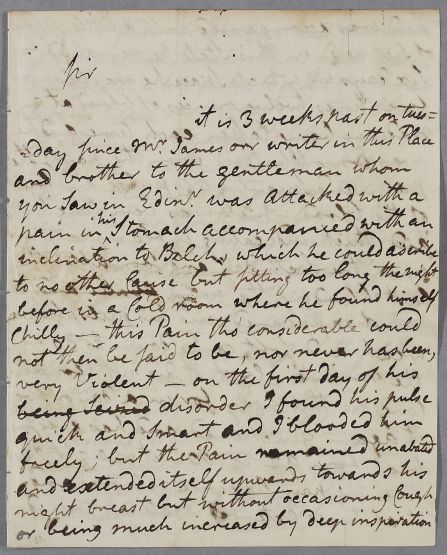 Sir
it is 3 weeks past on tues=
=day since Mr. James orr writer in this Place
and brother to the gentleman whom
you Saw in Edinr. was Attacked with a
pain in his Stomach accompanied with an
inclination to Belch, which he could ascribe
to no other Cause but sitting too long the night
before in a Cold room where he found himself
Chilly — this Pain tho considerable could
not then be said to be, nor never has been,
very Violent — on the first day of his
being Seized disorder I found his pulse
quick and Smart and I blooded him
freely, but the Pain remained unabated
and extended itself upwards towards his
right breast but without occasioning Cough
or being much increased by deep inspiration